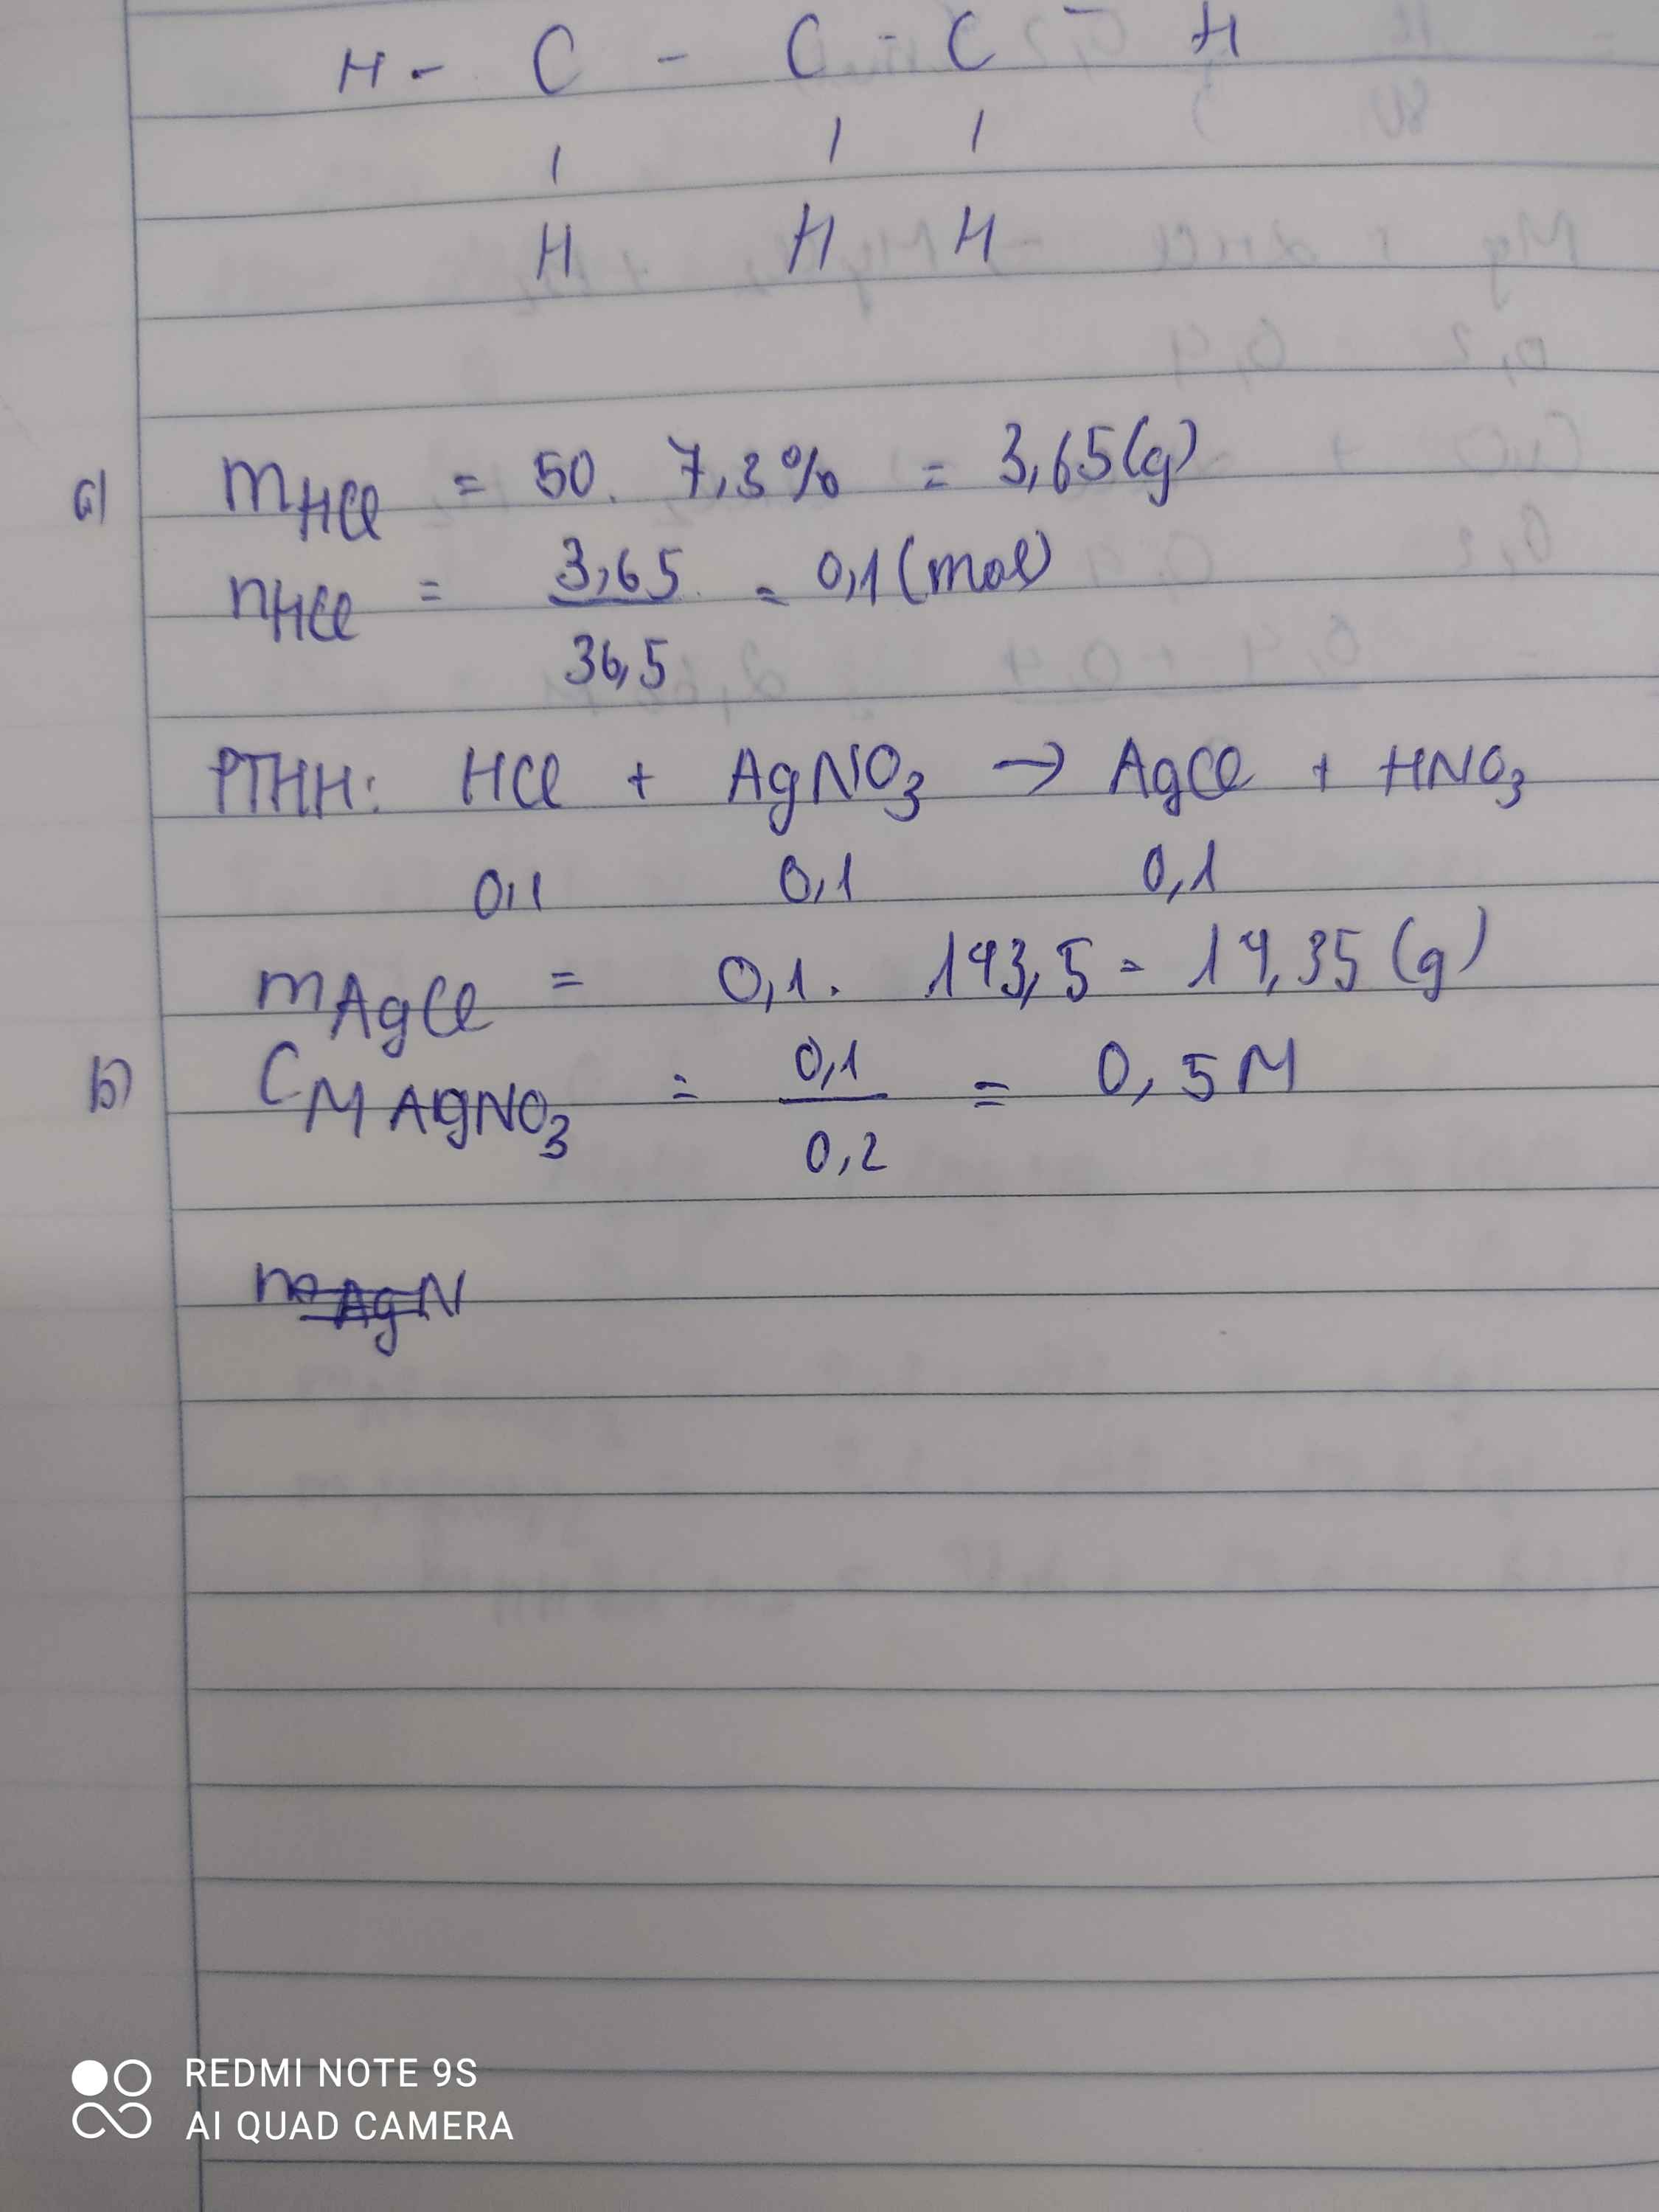 H - C - C - C - H
| | |
H H H
a) mHCl = 50. 7,3% = 3,65(g)
nHCl = 3,65 / 36,5 = 0,1 (mol)
PTHH: HCl + AgNO3 → AgCl + HNO3
0,1 0,1 0,1
mAgCl = 0,1. 143,5 = 14,35 (g)
b) CM AgNO3 = 0,1 / 0,2 = 0,5M
m AgN
REDMI NOTE 9S
AI QUAD CAMERA